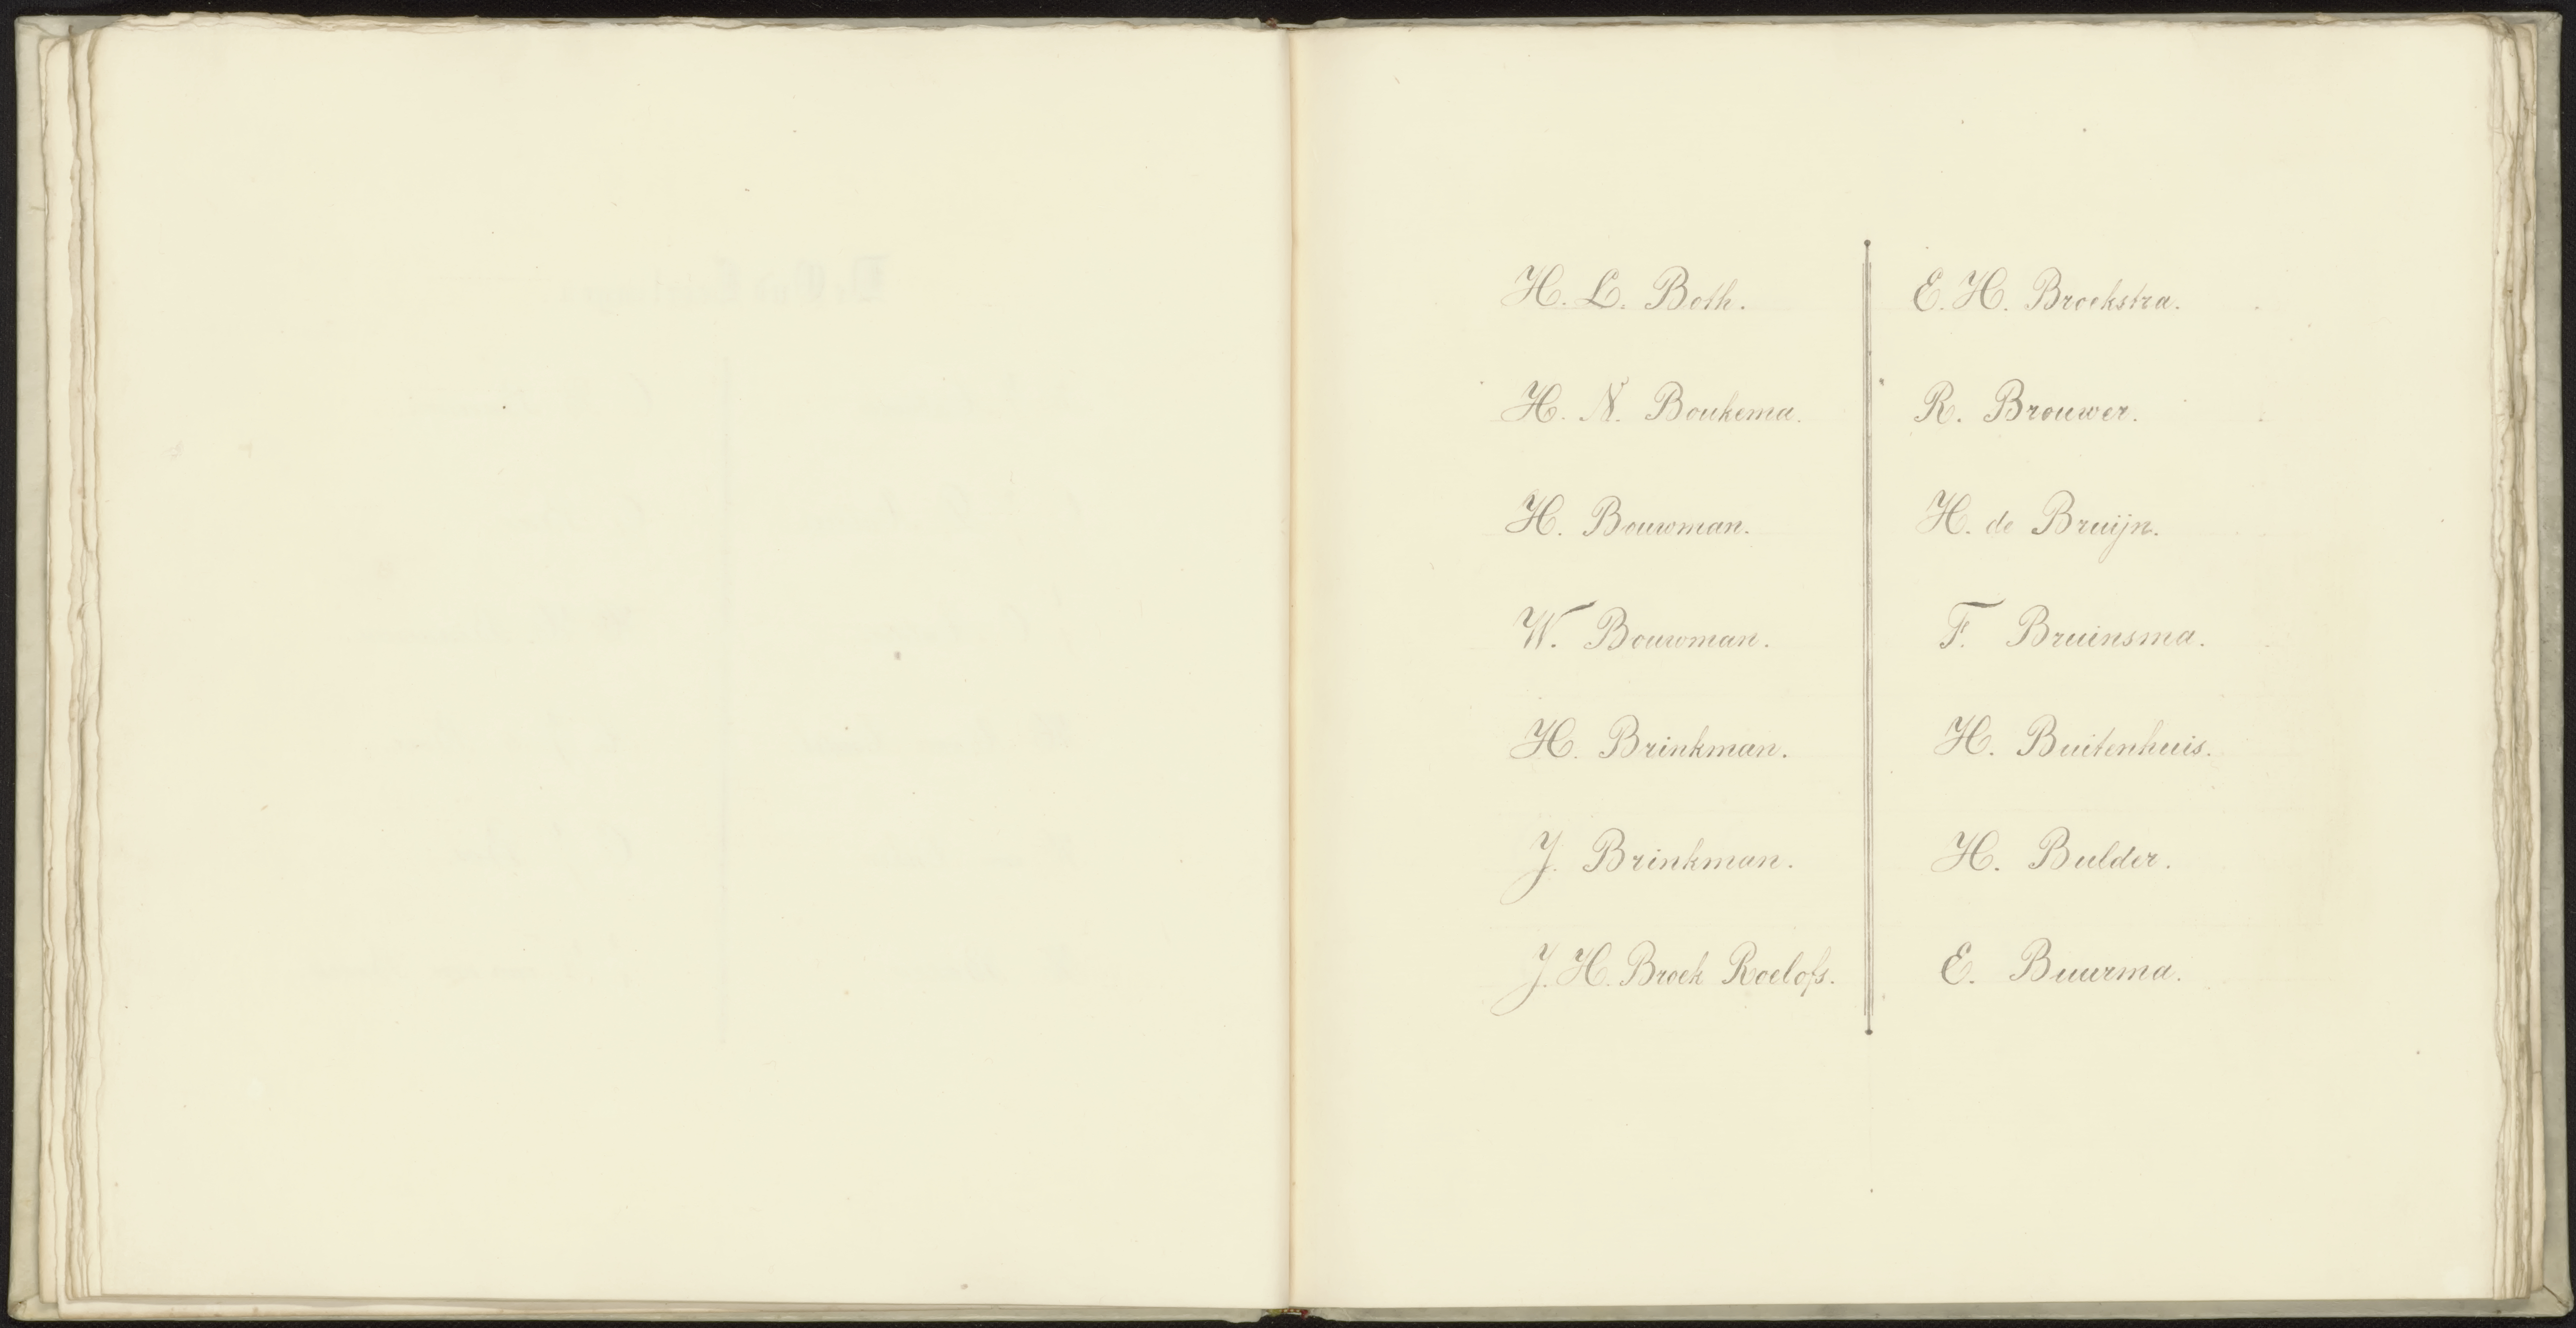 H. L. Both.
H. N. Boukema.
H. Bouwman.
W. Bouwman.
H. Brinkman.
J. Brinkman.
J. H. Broek Roelofs.
E. H. Broekstra.
R. Brouwer.
H. de Bruijn.
F. Bruinsma.
H. Buitenhuis.
H. Bulder.
E. Buurma.